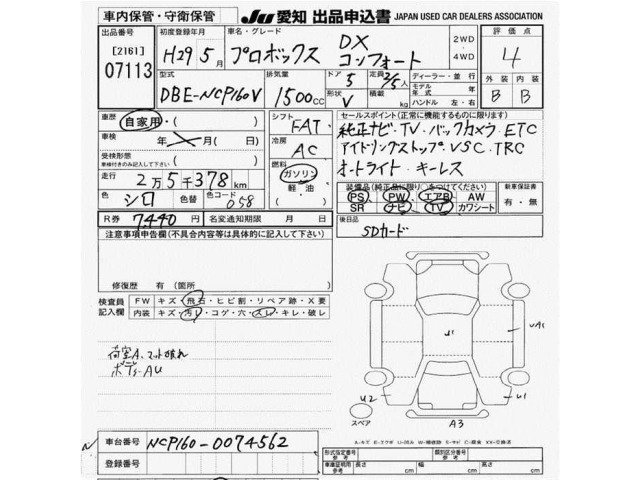 車内保管・守衛保管 JU 愛知 出品申込書 JAPAN USED CAR DEALERS ASSOCIATION
出品番号 初度登録年月 車名・グレード 評価点
[2161] 07113 H29年5月 プロボックス DX コンフォート 2WD・4WD 4
型式 排気量 ドア 定員 ディーラー・並行 外装 内装
DBE-NCP160V 1500cc 5 2/5人 モデル年 年式 B B
形状 積載 ハンドル 左・右
V kg
車歴 自家用・( ) シフト セールスポイント(正常に機能するものに限ります)
FAT 純正ナビ・TV・バックカメラ・ETC
車検 年 月 日 冷房 アイドリングストップ・VSC・TRC
受検形態 AC オートライト・キーレス
車検付きのみ記入して下さい ( ) 燃料
走行 2万5千378km ガソリン・軽油 ( )
装備品(純正品に限り○をつけてください) 新車保証書
色 シロ 色替 色コード 058 PS PW エアB AW 有・無
SR ナビ TV カワシート
R券 7,440円 名変通知期限 月 日
注意事項申告欄(不具合内容等は具体的に記入して下さい) 後日品
SDカード
修復歴 有(箇所 )
検査員記入欄 FW キズ・飛石・ヒビ割・リペア跡・X要
内装 キズ・汚レ・コゲ・穴・スレ・キレ・破レ
荷室A、マット破れ
ボデーAU
JC
UA1
U2
U1
スペア
A3
車台番号 NCP160-0074562
登録番号
形式指定番号 類別区分番号
車庫証明用参考 長さ cm 幅 cm 高さ cm